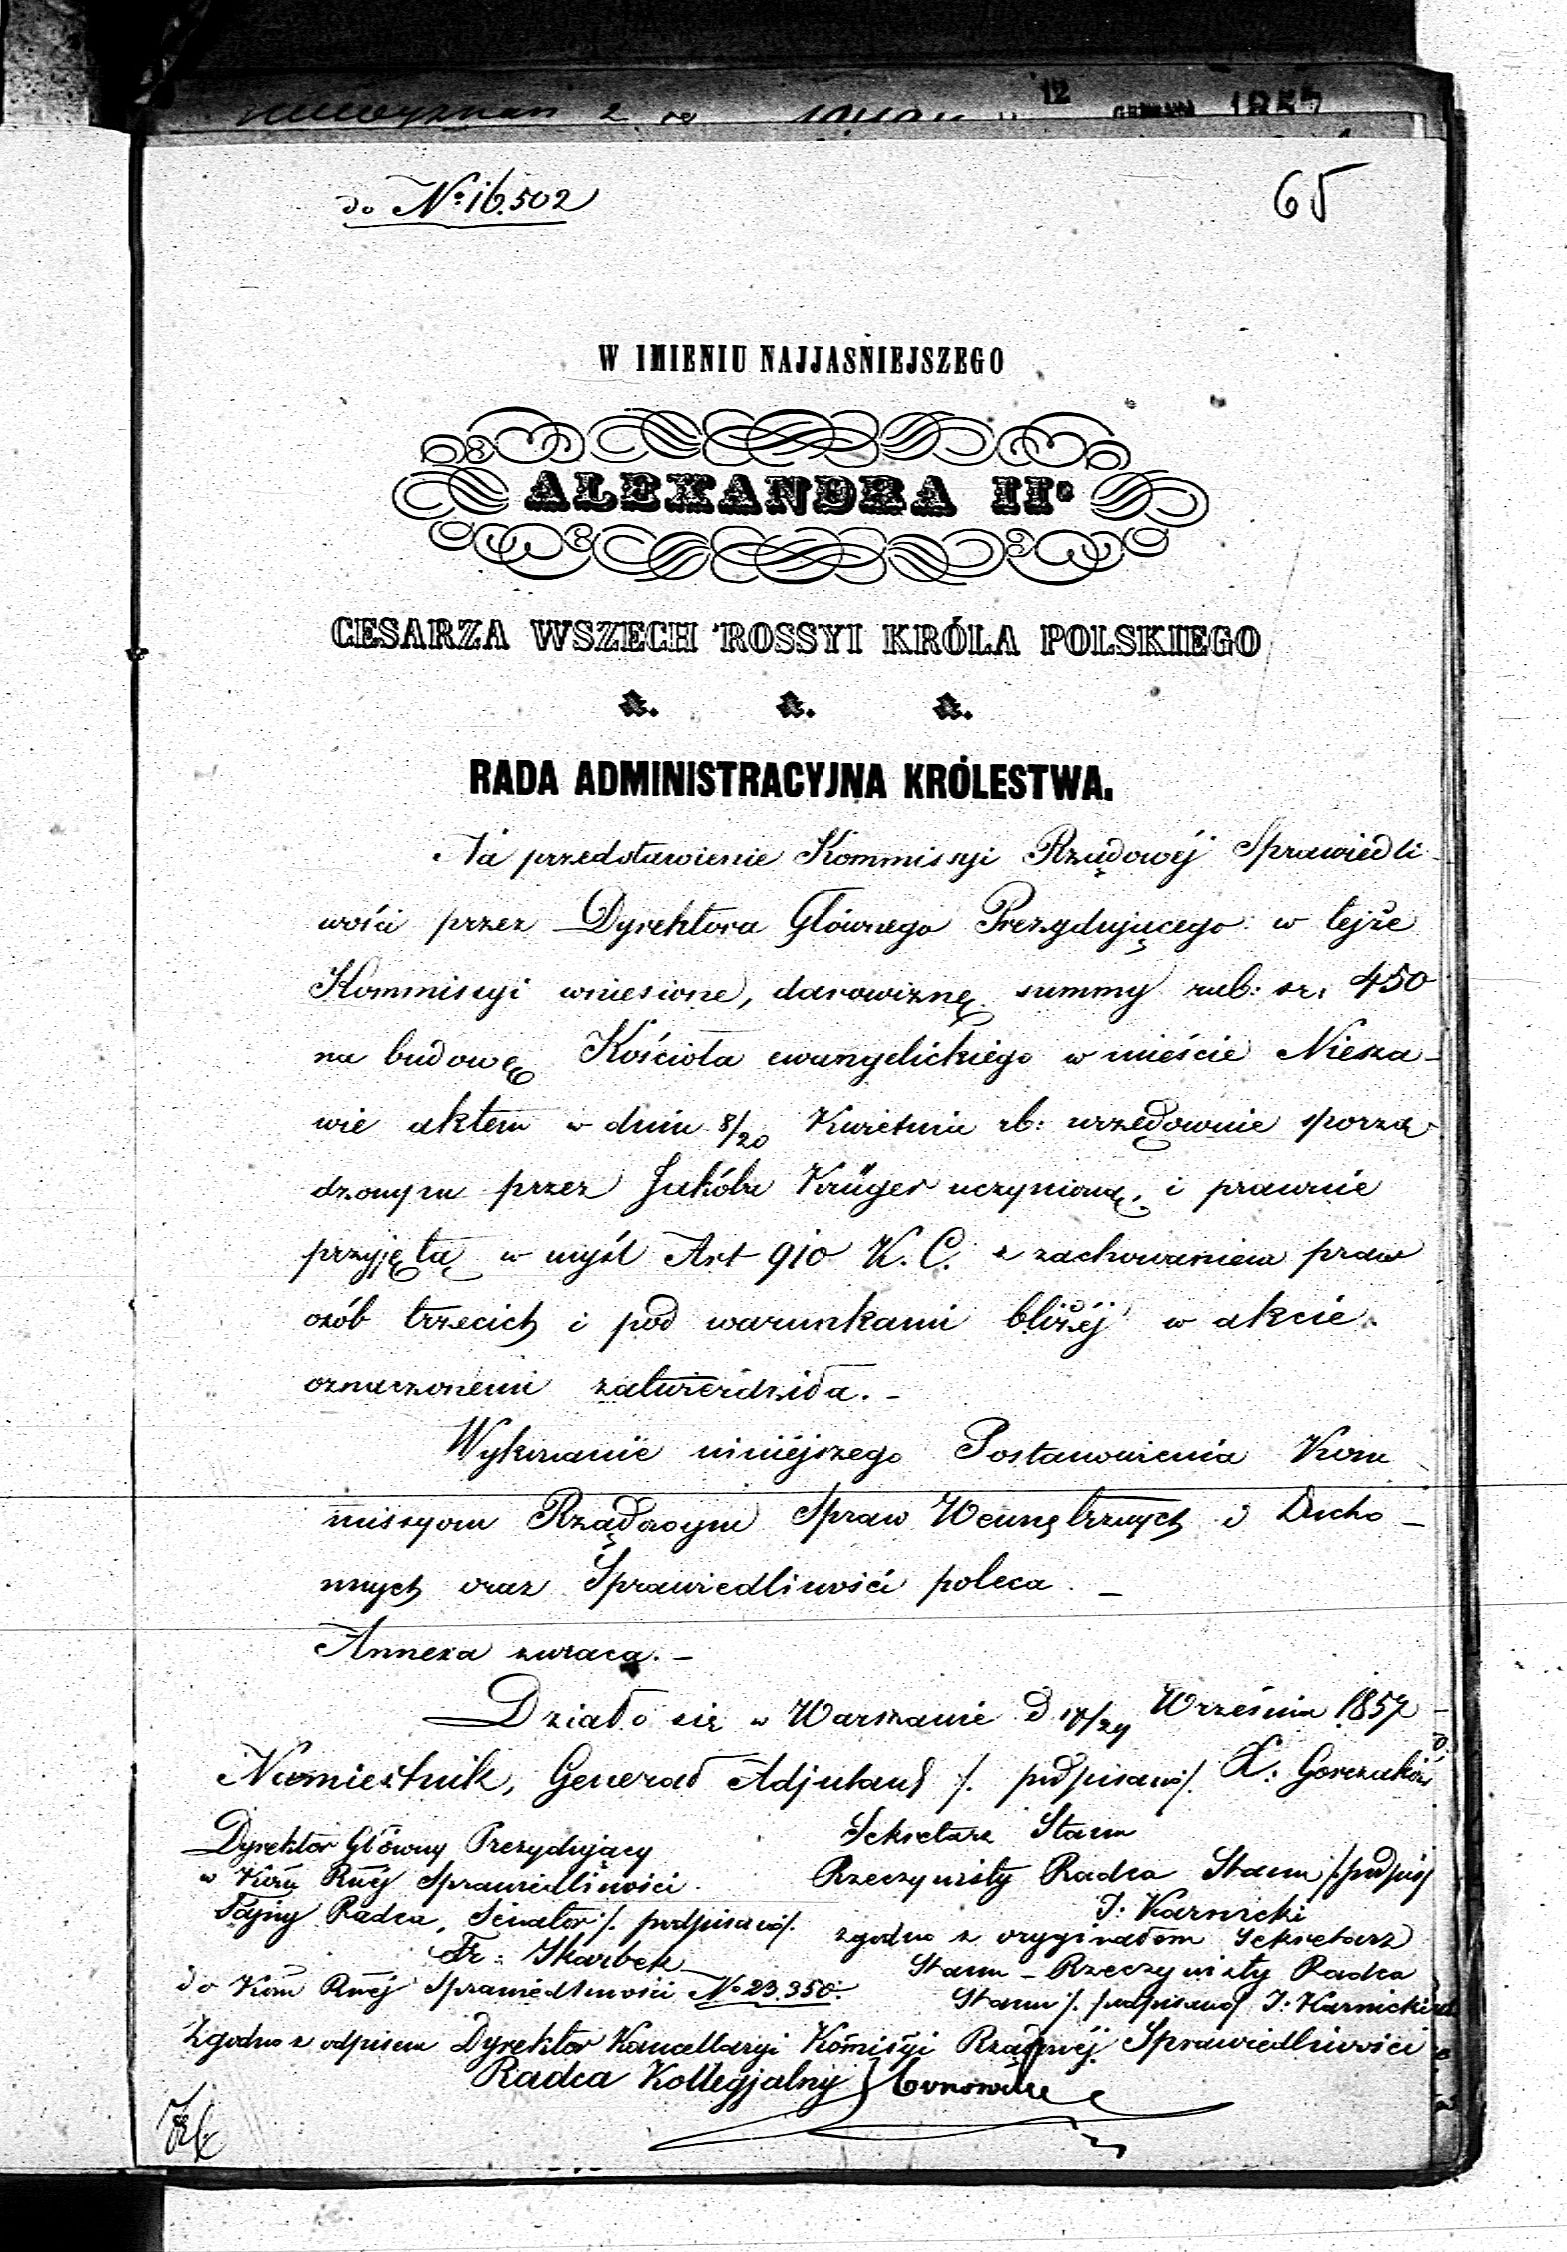 12 1857
do No 16.502
65
W IMIENIU NAJJASNIEJSZEGO
ALEXANDRA IIo
CESARZA WSZECH ROSSYI KRÓLA POLSKIEGO
&. &. &.
RADA ADMINISTRACYJNA KRÓLESTWA.
Na przedstawienie Kommissyi Rządowéj Sprawiedli-
wości przez Dyrektora Głównego Prezydującego w tejże
Kommissyi wniesione, darowiznę summy rub: sr: 450
na budowę Kościoła ewangelickiego w mieście Niesza-
wie aktem w dniu 8/20 Kwietnia rb: urzędownie sporzą-
dzonym przez Jakóba Krüger uczynioną, i prawnie
przyjętą w myśl Art 910 K. C. z zachowaniem praw
osób trzecich i pod warunkami bliżéj w akcie
oznaczonemi zatwierdziła. -
Wykonanie niniéjszego Postanowienia Kom
missyom Rządowym Spraw Wewnętrznych i Ducho-
wnych oraz Sprawiedliwości poleca. -
Annexa zwraca. -
Działo się w Warszawie d 17/29 Września 1857
Namiestnik, Generał Adjutant /. podpisano/. X: Gorczaków
Dyrektor Główny Prezydujący
w Kom Rwéj Sprawiedliwości
Tajny Radca, Senator /. podpisano/.
Fr: Skarbek
Sekretarz Stanu
Rzeczywisty Radca Stanu /.podpis/
J: Karnicki
zgodno z oryginałem Sekretarz
Stanu - Rzeczywisty Radca
Stanu /. podpisano/ J: Karnicki
do Kom Rwéj Sprawiedliwości No 23.350.
Zgodno z odpisem Dyrektor Kancellaryi Komisyi Rządowéj Sprawiedliwości
Radca Kollegjalny